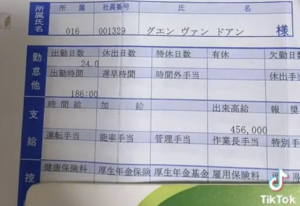 所属氏名
所 属 社員番号 氏 名
016 001329 グエン ヴァン ドアン 様
勤怠他
出勤日数 休出日数 特休日数 有休 欠勤日
24.0
出勤時間 遅早時間 時間外手当
186:00
支給
時間給 加 給 出来高給 報 奨
456,000
運転手当 能率手当 管理手当 作業長手当 特別手
控
健康保険料 厚生年金保険 厚生年金基金 雇用保険料
TikTok